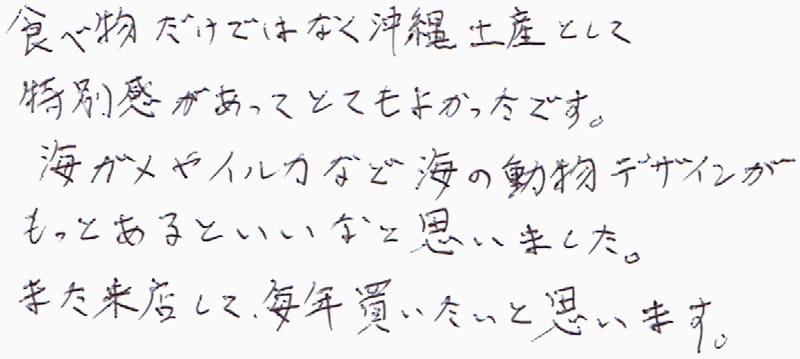 食べ物だけではなく沖縄土産として
特別感があってとてもよかったです。
海ガメやイルカなど海の動物デザインが
もっとあるといいなと思いました。
また来店して、毎年買いたいと思います。